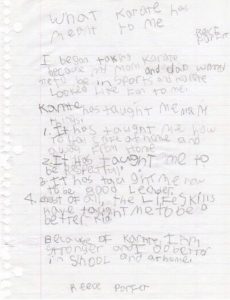 What Karate has
meant to me
Reece
Porter
I began taking Karate
because my mom and dad wanted
me to be in sports and Karate
looked like fun to me.
Karate has taught me
things.
1. It has taught me how
to be safe at home and
away from home
2. It has taught me to
be respectful
3 It has taught me how
to be good leader
4. most of all, the Life skills
have taught me to be a
better kid
Because of Karate I am
stronger and do better
in school and at home.
Reece Porter